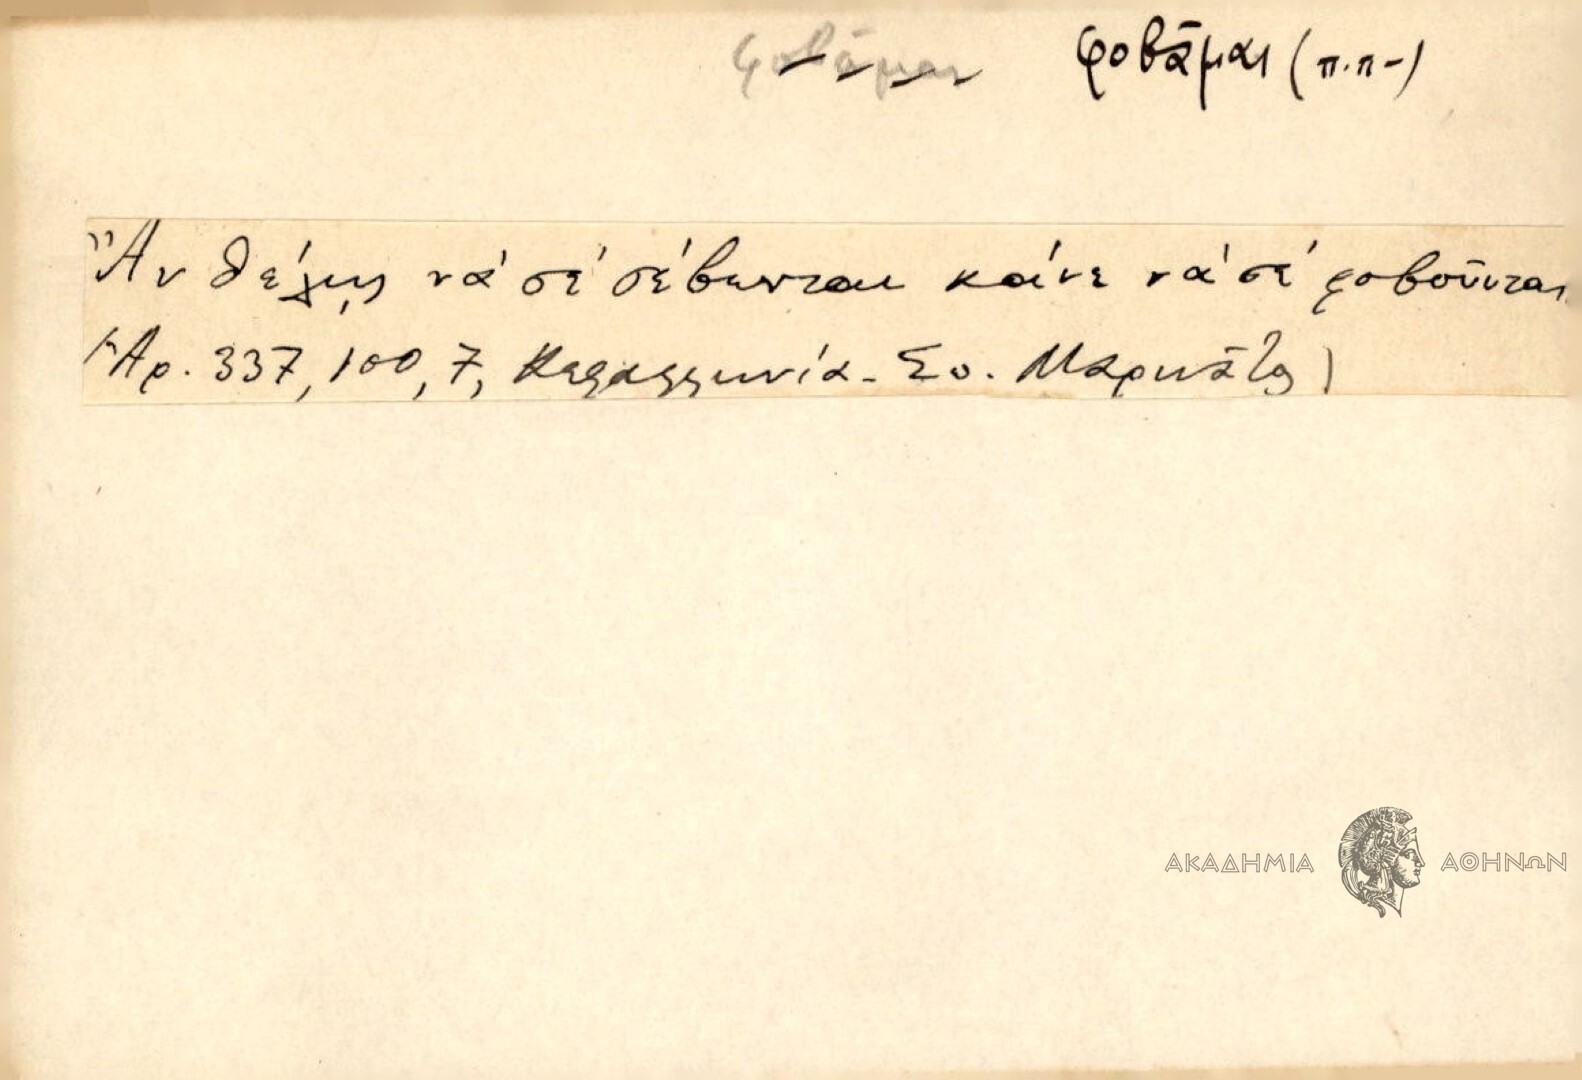 φοβᾶμαι φοβᾶμαι (π.π-)
Ἂν θέλῃς νὰ σὲ σέβωνται κάνε νὰ σὲ φοβοῦνται
(Ἀρ. 337, 100, 7, Κεφαλληνία - Σπ. Μαρινᾶτος)
ΑΚΑΔΗΜΙΑ ΑΘΗΝΩΝ